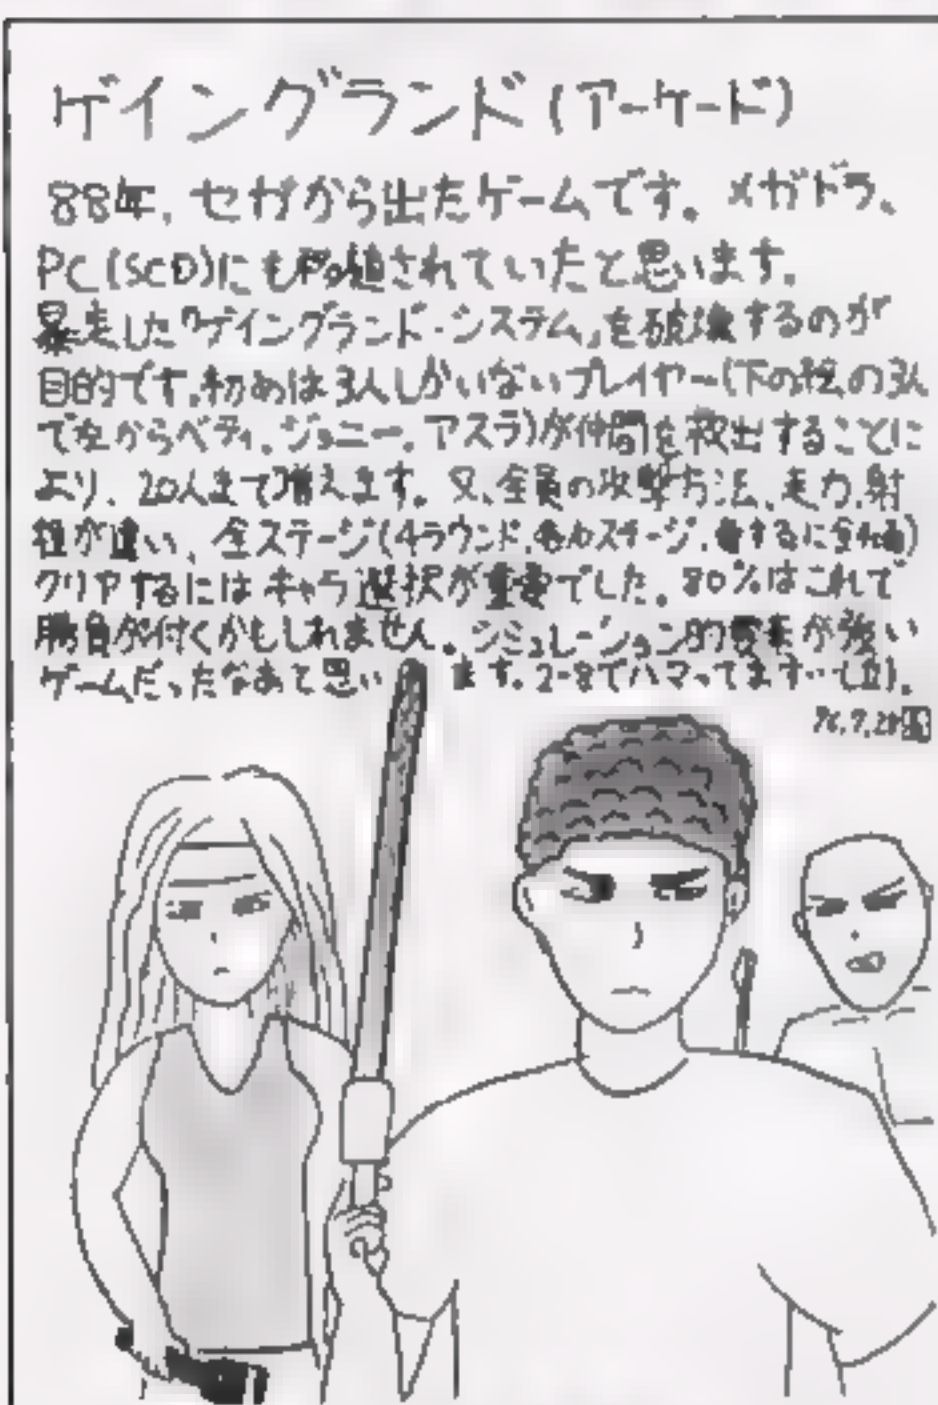 ゲイングランド(アーケード)
88年,セガから出たゲームです。メガドラ、
PC(SCD)にも移植されていたと思います。
暴走した「ゲイングランド・システム」を破壊するのが
目的です。初めは3人しかいないプレイヤー(下の絵の3人
で左からベティ、ジョニー、アスラ)が仲間を救出することに
より、20人まで増えます。又、全員の攻撃方法、走力、射
程が違い、全ステージ(4ラウンド,各カステージ,要するに全40面)
クリアするにはキャラ選択が重要でした。80%はこれで
勝負が付くかもしれません。シミュレーション的要素が強い
ゲームだったなあと思います。2-8でハマってます…